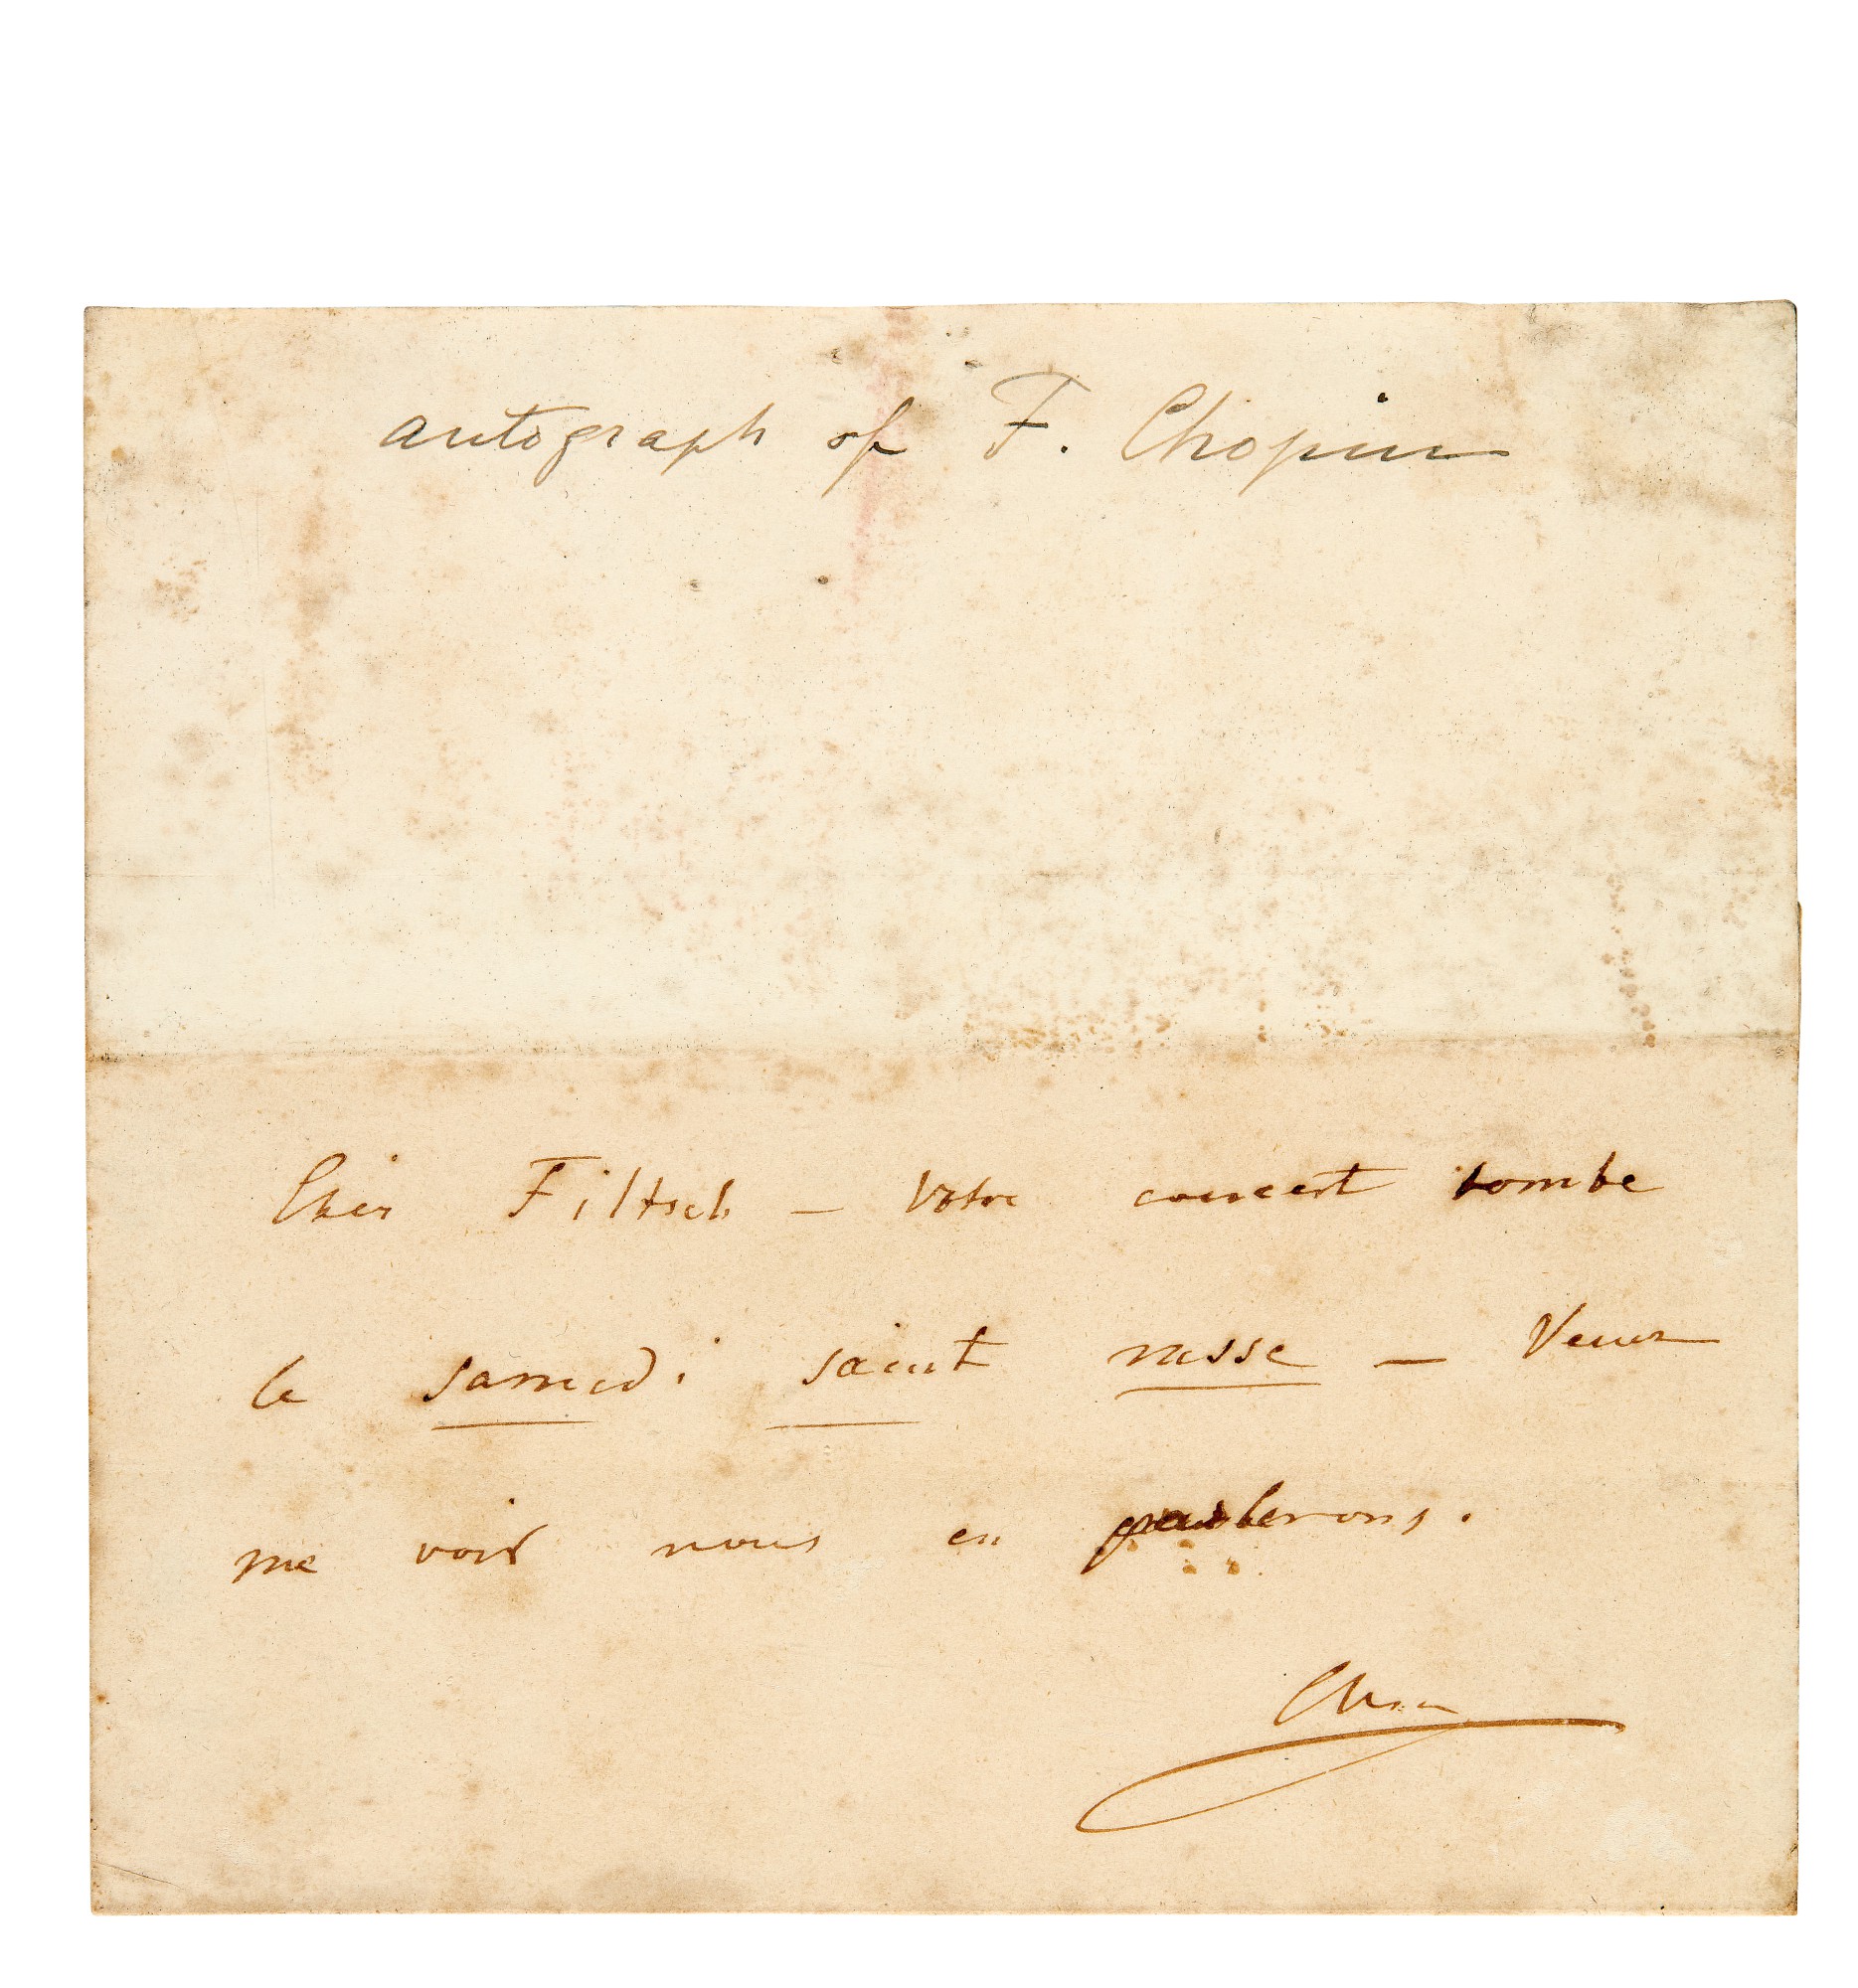 autograph of F. Chopin
Cher Filtsch – Votre concert tombe
le samedi saint russe – Venez
me voir nous en parlerons.
Chopin